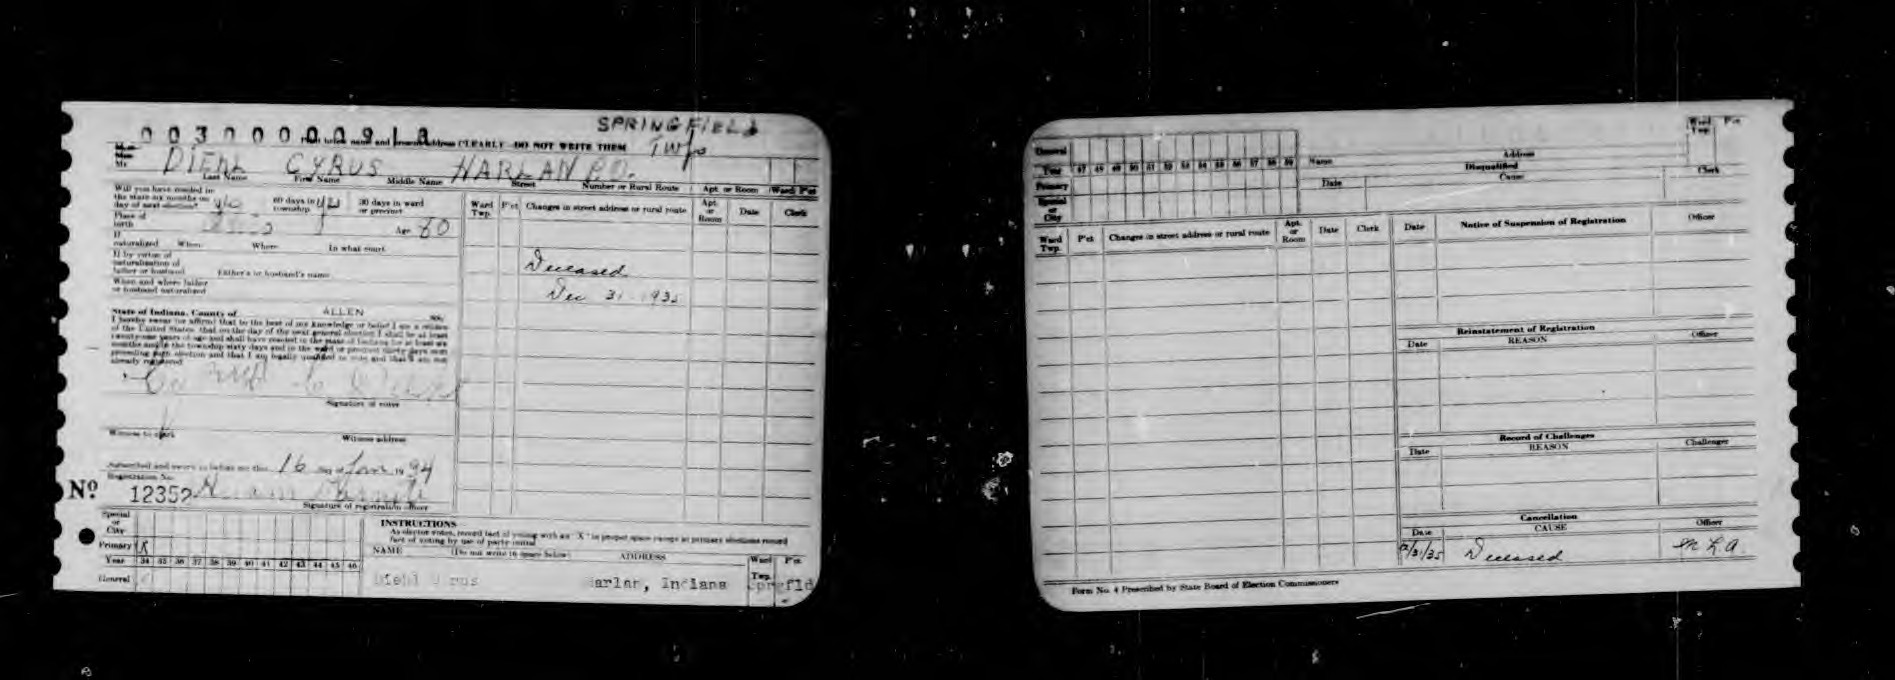 SPRINGFIELD
Twp
Print below name and present address CLEARLY DO NOT WRITE THEM
Mr.
DIEHL CYRUS HARLAN P.O.
Last Name First Name Middle Name Street Number or Rural Route Apt. or Room Ward Pct
Will you have resided in
the state six months on
day of next election? yes 60 days in township yes 30 days in ward or precinct
Place of birth
Age 80
If naturalized When Where In what court
If by virtue of
naturalization of
father or husband Father's or husband's name
When and where father
or husband naturalized
Ward Twp. P'ct Changes in street address or rural route Apt. or Room Date Clerk
Deceased
Dec 31 1935
State of Indiana, County of ALLEN ss:
I hereby swear (or affirm) that to the best of my knowledge or belief I am a citizen
of the United States, that on the day of the next general election I shall be at least
twenty-one years of age and shall have resided in the state of Indiana for at least six
months and in the township sixty days and in the ward or precinct thirty days next
preceding such election and that I am legally qualified to vote and that I am not
already registered
Signature of voter
Witness to mark Witness address
Subscribed and sworn to before me this 16 day of Jan 1934
Registration No.
No. 12352
Signature of registration officer
Special or City
Primary X
Year 34 35 36 37 38 39 40 41 42 43 44 45 46
General
INSTRUCTIONS
As elector votes, record fact of voting with an "X" in proper space except in primary elections record
fact of voting by use of party initial
NAME (Do not write in space below) ADDRESS Ward Twp. P'ct
Diehl rus arlan, Indiana Sprgfld
General
Year 47 48 49 50 51 52 53 54 55 56 57 58 59
Primary
Special or City
Name Address Ward Twp. P'ct
Disqualified
Date Cause Clerk
Ward Twp. P'ct Changes in street address or rural route Apt. or Room Date Clerk
Date Notice of Suspension of Registration Officer
Reinstatement of Registration
Date REASON Officer
Record of Challenges
Date REASON Challenger
Cancellation
Date CAUSE Officer
12/31/35 Deceased M L A
Form No. 4 Prescribed by State Board of Election Commissioners